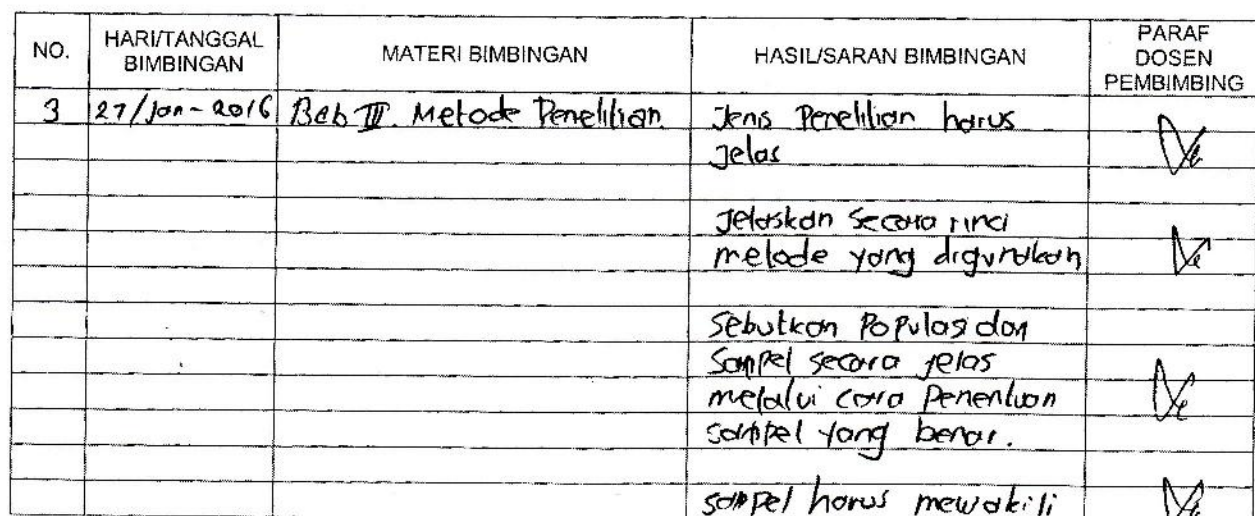 NO.
HARI/TANGGAL
BIMBINGAN
MATERI BIMBINGAN
HASIL/SARAN BIMBINGAN
PARAF
DOSEN
PEMBIMBING
3
27/Jan-2016
Bab III. Metode Penelitian
Jenis Penelitian harus
Jelas
Jelaskan secara rinci
metode yang digunakan
Sebutkan Populasi dan
Sampel secara jelas
melalui cara Penentuan
sampel yang benar.
sampel harus mewakili